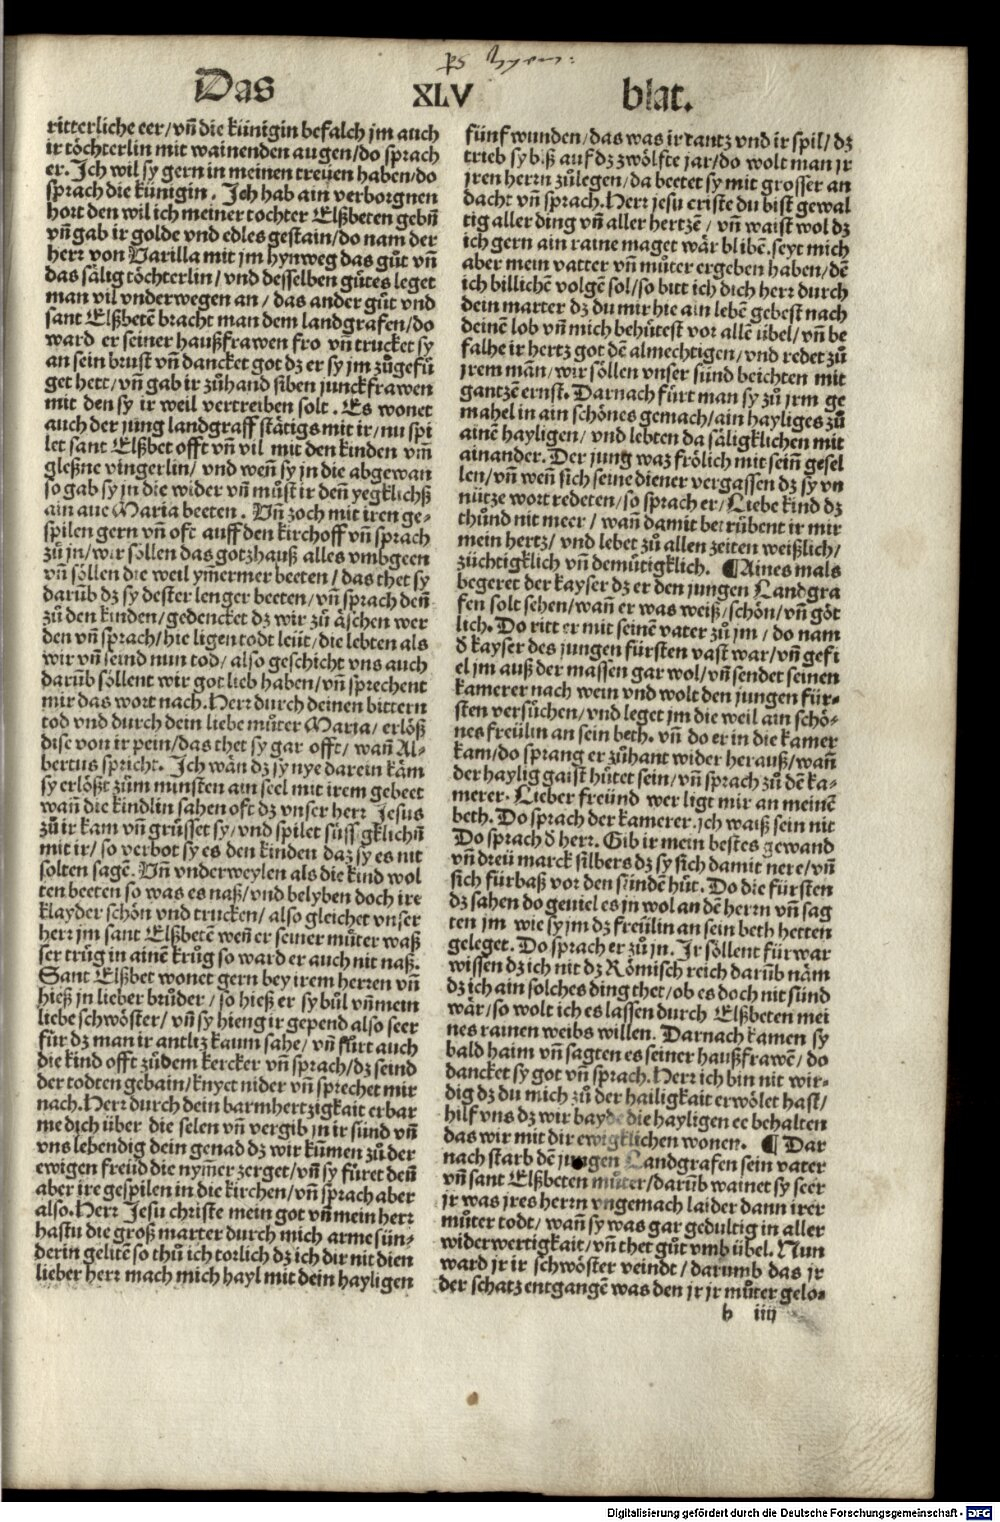 Das XLV blat.
ritterliche eer/vn̄ die künigin befalch jm auch
ir töchterlin mit wainenden augen/do sprach
er. Ich wil sy gern in meinen treüen haben/do
sprach die künigin. Ich hab ain verborgnen
hort den wil ich meiner tochter Elßbeten gebn̄
vn̄ gab ir golde vnd edles gestain/do nam der
herr von Varilla mit jm hynweg das gůt vn̄
das sälig töchterlin/vnd desselben gůtes leget
man vil vnderwegen an/das ander gůt vnd
sant Elßbetē bracht man dem landgrafen/do
ward er seiner haußfrawen fro vn̄ trucket sy
an sein brust vn̄ dancket got dz er sy jm zůgefü
get hett/vn̄ gab ir zůhand siben junckfrawen
mit den sy ir weil vertreiben solt. Es wonet
auch der jung landgraff stätigs mit ir/nu spi
let sant Elßbet offt vn̄ vil mit den kinden vm̄
gleßne vingerlin/vnd wen̄ sy jn die abgewan
so gab sy jn die wider vn̄ můst ir den̄ yegklichß
ain aue Maria beeten. Vn̄ zoch mit iren ge⸗
spilen gern vn̄ oft auff den kirchoff vn̄ sprach
zů jn/wir söllen das gotzhauß alles vmbgeen
vn̄ söllen die weil ymermer beeten/das thet sy
darūb dz sy dester lenger beeten/vn̄ sprach den̄
zů den kinden/gedencket dz wir zů äschen wer
den vn̄ sprach/hie ligen todt leüt/die lebten als
wir vn̄ seind nun tod/also geschicht vns auch
darūb söllent wir got lieb haben/vn̄ sprechent
mir das wort nach. Herr durch deinen bittern
tod vnd durch dein liebe můter Maria/erlöß
dise von ir pein/das thet sy gar offt/wan̄ Al⸗
bertus spricht. Ich wän dz sy nye darein käm
sy erlößt zům minsten ain seel mit irem gebeet
wan̄ die kindlin sahen oft dz vnser herr Jesus
zů ir kam vn̄ grüsset sy/vnd spilet süssigklichn̄
mit ir/so verbot sy es den kinden daz sy es nit
solten sagē. Vn̄ vnderweylen als die kind wol
ten beeten so was es naß/vnd belyben doch ire
klayder schön vnd trucken/also gleichet vnser
herr jm sant Elßbetē wen̄ er seiner můter waß
ser trůg in ainē krůg so ward er auch nit naß.
Sant Elßbet wonet gern bey irem herren vn̄
hieß jn lieber brůder/so hieß er sy bůl vn̄ mein
liebe schwöster/vn̄ sy hieng ir gepend also seer
für dz man ir antliz kaum sahe/vn̄ fürt auch
die kind offt zůdem kercker vn̄ sprach/dz seind
der todten gebain/knyet nider vn̄ sprechet mir
nach. Herr durch dein barmhertzigkait erbar
me dich über die selen vn̄ vergib jn ir sünd vn̄
vns lebendig dein genad dz wir kümen zů der
ewigen freüd die nymer zerget/vn̄ sy füret den̄
aber ire gespilen in die kirchen/vn̄ sprach aber
also. Herr Jesu christe mein got vn̄ mein herr
hastu die groß marter durch mich arme sün⸗
derin gelitē so thů ich torlich dz ich dir nit dien
lieber herr mach mich hayl mit dein hayligen
fünf wunden/das was ir tantz vnd ir spil/dz
trieb sy biß auf dz zwölfte jar/do wolt man jr
jren herrn zůlegen/da beetet sy mit grosser an
dacht vn̄ sprach. Herr jesu criste du bist gewal
tig aller ding vn̄ aller hertzē/vn̄ waist wol dz
ich gern ain raine maget wär blibē. seyt mich
aber mein vatter vn̄ můter ergeben haben/dē
ich billichen volgē sol/so bitt ich dich herr durch
dein marter dz du mir hie ain lebē gebest nach
deinē lob vn̄ mich behütest vor allē übel/vn̄ be
falhe ir hertz got dē almechtigen/vnd redet zů
jrem man̄/wir söllen vnser sünd beichten mit
gantzē ernst. Darnach fürt man sy zů jrm ge
mahel in ain schönes gemach/ain hayliges zů
ainē hayligen/vnd lebten da säligklichen mit
ainander. Der jung waz frölich mit sein̄ gesel
len/vn̄ wen̄ sich seine diener vergassen dz sy vn
nütze wort redeten/so sprach er/Liebe kind dz
thůnd nit meer/wan̄ damit betrübent ir mir
mein hertz/vnd lebet zů allen zeiten weißlich/
züchtigklich vn̄ demütigklich. ¶Aines mals
begeret der kayser dz er den jungen Landgra
fen solt sehen/wan̄ er was weiß/schön/vn̄ göt
lich. Do ritt er mit seinē vater zů jm/do nam
d̄ kayser des jungen fürsten vast war/vn̄ gefi
el jm auß der massen gar wol/vn̄ sendet seinen
kamerer nach wein vnd wolt den jungen für⸗
sten versůchen/vnd leget jm die weil ain schö⸗
nes freülin an sein beth. vn̄ do er in die kamer
kam/do sprang er zůhant wider herauß/wan̄
der haylig gaist hůtet sein/vn̄ sprach zů dē ka⸗
merer. Lieber freünd wer ligt mir an meinē
beth. Do sprach der kamerer. ich waiß sein nit
Do sprach d̄ herr. Gib ir mein bestes gewand
vn̄ dreü marck silbers dz sy sich damit nere/vn̄
sich fürbaß vor den sündē hüt. Do die fürsten
dz sahen do geuiel es jn wol an dē herrn vn̄ sag
ten jm wie sy jm dz freülin an sein beth hetten
geleget. Do sprach er zů jn. Ir söllent fürwar
wissen dz ich nit dz Römisch reich darūb näm
dz ich ain solches ding thet/ob es doch nit sünd
wär/so wolt ich es lassen durch Elßbeten mei
nes rainen weibs willen. Darnach kamen sy
bald haim vn̄ sagten es seiner haußfrawē/do
dancket sy got vn̄ sprach. Herr ich bin nit wir⸗
dig dz du mich zů der hailigkait erwölet hast/
hilf vns dz wir bayde die hayligen ee behalten
das wir mit dir ewigklichen wonen. ¶ Dar
nach starb dē jungen Landgrafen sein vater
vn̄ sant Elßbeten můter/darūb wainet sy seer
jr was jres herrn vngemach laider dann irer
můter todt/wan̄ sy was gar gedultig in aller
widerwertigkait/vn̄ thet gůt vmb übel. Nun
ward jr ir schwöster veindt/darumb das jr
der schatz entgangē was den jr jr můter gelo⸗
b iiij
Digitalisierung gefördert durch die Deutsche Forschungsgemeinschaft - DFG